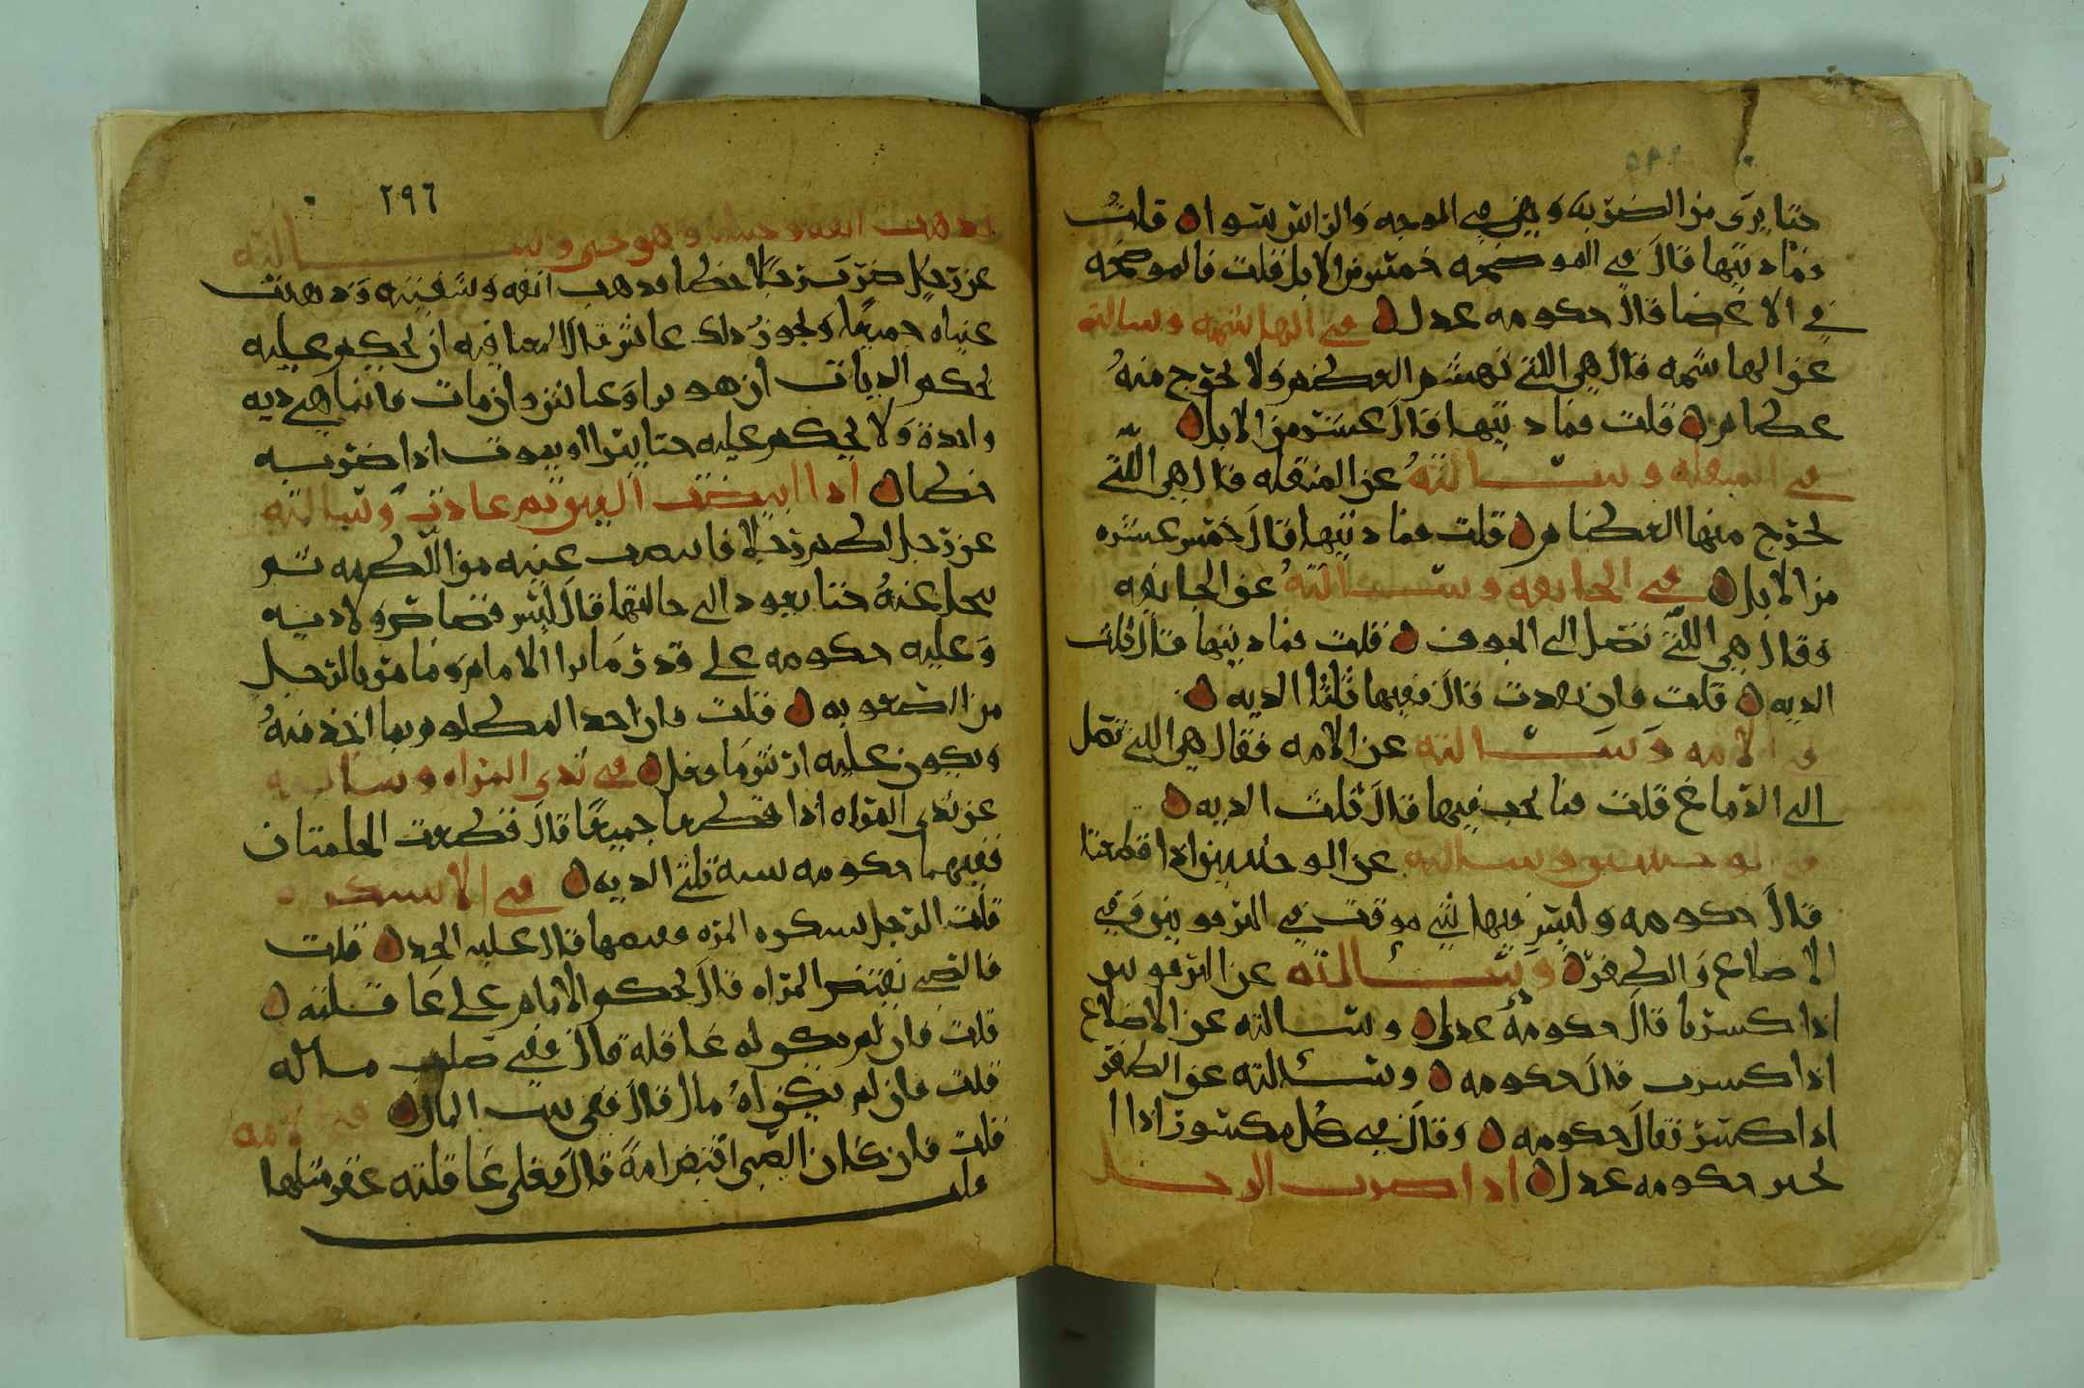 حتا يرى من الضربه وهي في الوجه والراس سوا قلت
فما ديتها قال في الموضحه خمس من الابل قلت فالموضحه
في الاعضا قال حكومه عدل في الهاشمه وسالته
عن الهاشمه قال هي اللتي تهشم العظم ولا يخرج منه
عظام قلت فما ديتها قال عشر من الابل
في المنقله وسالته عن المنقله قال هي اللتي
يخرج منها العظام قلت فما ديتها قال خمس عشره
من الابل في الجايفه وسالته عن الجايفه
وقال هي اللتي تصل الى الجوف قلت فما ديتها قال ثلث
الديه قلت فان نفدت قال ففيها ثلثا الديه
في الامه وسالته عن الامه فقال هي اللتي تصل
الى الدماغ قلت فما يجب فيها قال ثلث الديه
وسالته عن الوجنتين اذا قطعتا
قال حكومه وليس فيها شي موقت في الترقوتين وفي
الاضلاع والظفر وسالته عن الترقوتين
اذا كسرتا قال حكومه عدل وسالته عن الاضلاع
اذا كسرت قال حكومه وسالته عن الظفر
اذا كسر فقال حكومه وقال في كل مكسور اذا ا
نجبر حكومه عدل اذا ضرب الرجل
٢٩٦
فذهب انفه وهو حي وسالته
عن رجل ضرب رجلا خطا فذهب انفه وشفتيه وذهبت
عيناه جميعا ويجوز ذلك عاش قال لمعافيه ان يحكم عليه
بحكم الديات ان هو برا وعاش وان مات فانما هي ديه
واحدة ولا يحكم عليه حتا يبرا او يموت اذا ضربه
خطا اذا ابيضت العين ثم عادت وسالته
عن رجل لطم رجلا فابيضت عينه من اللطمه ثم
ينجلي عنه حتا يعود الى حالتها قال ليس قصاص ولا ديه
وعليه حكومه على قدر ما يرا الامام وما مر بالرجل
من الصعوبه قلت فان احد المظلوم بما اخذ منه
ويكون عليه ارش ما فعل في ثدي المراه وسالته
عن ثدي المراه اذا قطعا جميعا قال قطعت الحلمتان
ففيهما حكومه ثلثي الديه في الاستكراه
قلت الرجل يستكره المره قال عليه الحد قلت
فالصبي يفتض المراه قال يحكم الامام على عاقلته
قلت فان لم يكن له عاقله قال ففي صلب ماله
قلت فان لم يكن له مال قال ففي بيت المال
قلت فان كان الصبي افتض امة قال فعلى عاقلته عقر مثلها
قلت